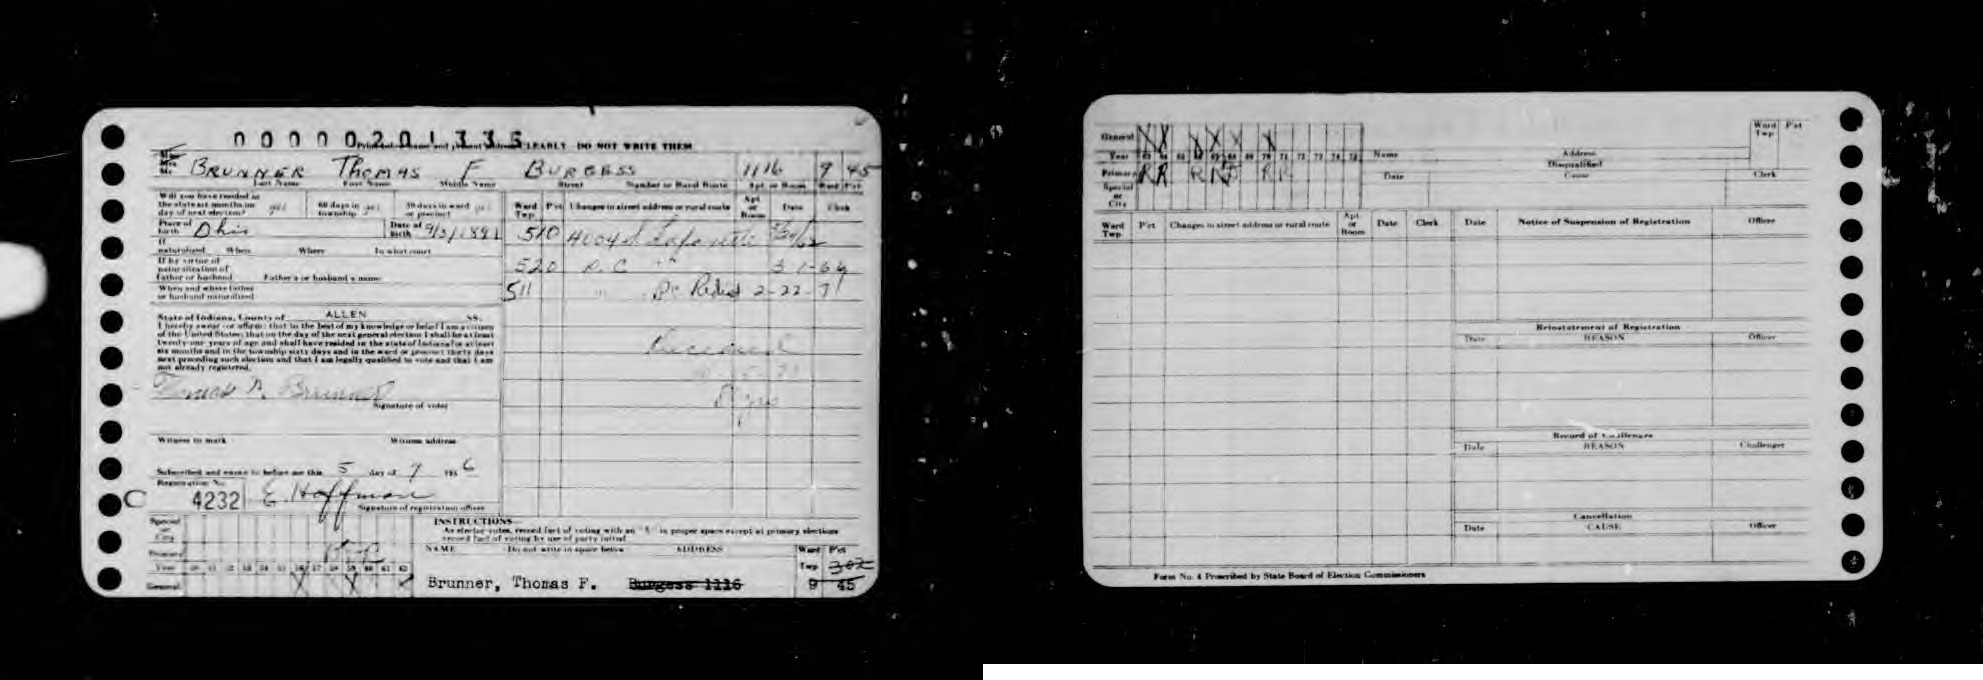 00000201335
CLEARLY DO NOT WRITE THEM
Mrs
BRUNNER THOMAS F BURGESS 1116 9 45
Last Name First Name Middle Name Street Number or Rural Route Apt or Room Ward Pct
Will you have resided in the state six months on day of next election? yes 60 days in township yes 30 days in ward or precinct yes
Place of birth Ohio Date of birth 9/3/1891
If naturalized When Where In what court
If by virtue of naturalization of father or husband Father's or husband's name
When and where father or husband naturalized
State of Indiana, County of ALLEN SS:
I hereby swear (or affirm) that to the best of my knowledge or belief I am a citizen
of the United States; that on the day of the next general election I shall be at least
twenty-one years of age and shall have resided in the state of Indiana for at least
six months and in the township sixty days and in the ward or precinct thirty days
next preceding such election and that I am legally qualified to vote and that I am
not already registered.
Brunner
Signature of voter
Witness to mark Witness address
Subscribed and sworn to before me this 5 day of 7 1956
Registration No.
C 4232 E. Hoffman
Signature of registration officer
Ward Twp Pct Changes in street address or rural route Apt or Room Date Clerk
510 4004 S Lafayette
520 P. C. " 3-1-64
511 " 2-22-71
Special or City
Primary
Year 50 51 52 53 54 55 56 57 58 59 60 61 62
General
INSTRUCTIONS
As elector votes, record fact of voting with an "X" in proper space except at primary elections
record fact of voting by use of party initial
NAME Do not write in space below ADDRESS Ward Pct
Twp 302
Brunner, Thomas F. Burgess 1116 9 45
General
Year 63 64 65 66 67 68 69 70 71 72 73 74 75
Primary R R R R R R
Special or City
Name Address Ward Twp Pct
Disqualified
Date Cause Clerk
Ward Twp Pct Changes in street address or rural route Apt or Room Date Clerk Date Notice of Suspension of Registration Officer
Reinstatement of Registration
Date REASON Officer
Record of Challenges
Date REASON Challenger
Cancellation
Date CAUSE Officer
Form No. 4 Prescribed by State Board of Election Commissioners